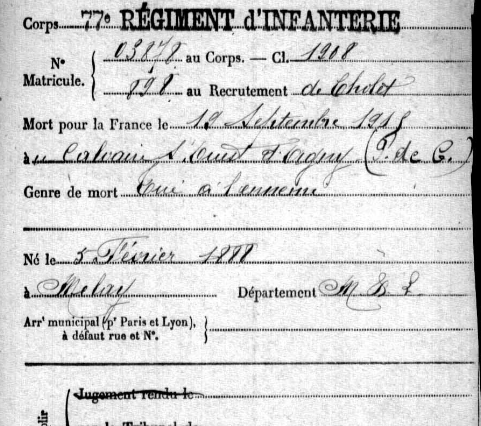 Corps 77e RÉGIMENT d'INFANTERIE
N° Matricule. { 03878 au Corps. — Cl. 1908
898 au Recrutement de Cholet
Mort pour la France le 19 Septembre 1915
à au Calvaire à l'Ouest d'Agny (P. de C.)
Genre de mort Tué à l'ennemi
Né le 5 Février 1888
à Melay Département M & L
Arrt municipal (pr Paris et Lyon), à défaut rue et N°. }
Jugement rendu le
par le Tribunal de